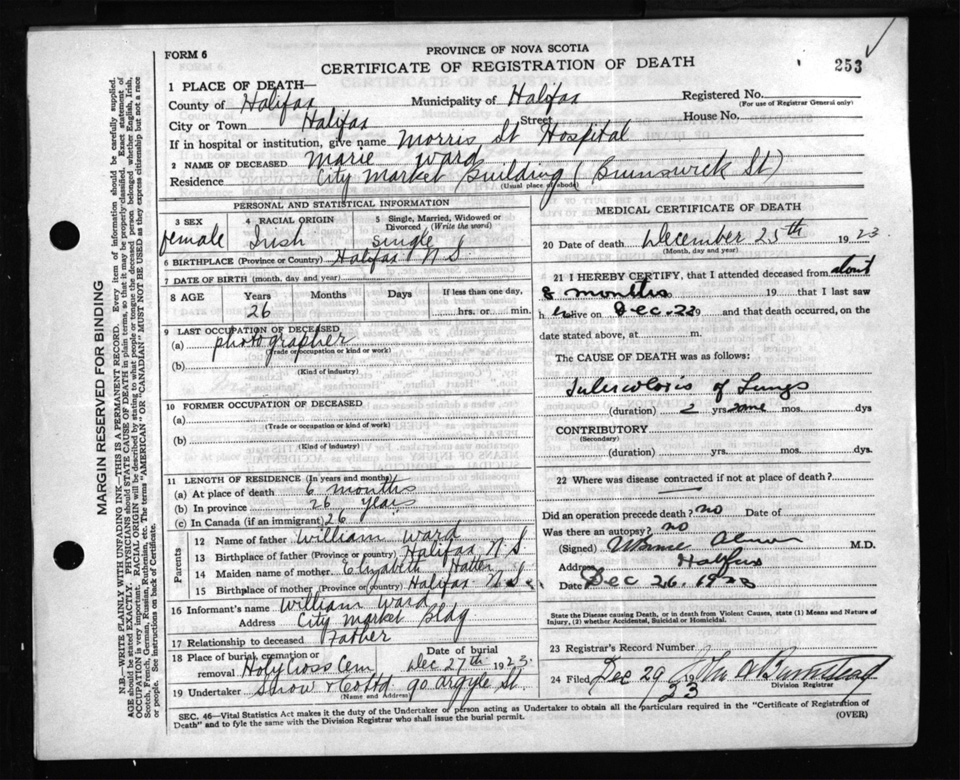 FORM 6
PROVINCE OF NOVA SCOTIA
CERTIFICATE OF REGISTRATION OF DEATH
253
1 PLACE OF DEATH—
County of Halifax Municipality of Halifax Registered No.
(For use of Registrar General only)
City or Town Halifax Street House No.
If in hospital or institution, give name Morris St Hospital
2 NAME OF DECEASED Marie Ward
Residence City Market Building (Brunswick St)
(Usual place of abode)
PERSONAL AND STATISTICAL INFORMATION
3 SEX 4 RACIAL ORIGIN 5 Single, Married, Widowed or Divorced (Write the word)
female Irish single
6 BIRTHPLACE (Province or Country) Halifax N S
7 DATE OF BIRTH (month, day and year)
8 AGE Years Months Days If less than one day,
26 hrs. or min.
9 LAST OCCUPATION OF DECEASED
(a) photographer
(Trade or occupation or kind or work)
(b)
(Kind of industry)
10 FORMER OCCUPATION OF DECEASED
(a)
(Trade or occupation or kind of work)
(b)
(Kind of industry)
11 LENGTH OF RESIDENCE (In years and months)
(a) At place of death 6 months
(b) In province 26 years
(c) In Canada (if an immigrant) 26
Parents
12 Name of father William Ward
13 Birthplace of father (Province or country) Halifax N.S
14 Maiden name of mother Elizabeth
15 Birthplace of mother (Province or country) Halifax N.S.
16 Informant's name William Ward
Address City Market Bldg
17 Relationship to deceased Father
18 Place of burial, cremation or removal Holy Cross Cem Date of burial Dec 27th 1923.
19 Undertaker Snow & Co Ltd 90 Argyle St
(Name and Address)
MEDICAL CERTIFICATE OF DEATH
20 Date of death December 25th 1923
(Month, day and year)
21 I HEREBY CERTIFY, that I attended deceased from about
8 months 19 that I last saw
h er alive on Dec. 23 19 and that death occurred, on the
date stated above, at m.
The CAUSE OF DEATH was as follows:
Tuberculosis of Lungs
(duration) 2 yrs some mos. dys
CONTRIBUTORY
(Secondary)
(duration) yrs. mos. dys.
22 Where was disease contracted if not at place of death?
Did an operation precede death? no Date of
Was there an autopsy? no
(Signed) M.D.
Address Halifax
Date Dec 26. 1923
State the Disease causing Death, or in death from Violent Causes, state (1) Means and Nature of
Injury, (2) whether Accidental, Suicidal or Homicidal.
23 Registrar's Record Number
24 Filed Dec 29 1923 John
Division Registrar
SEC. 46—Vital Statistics Act makes it the duty of the Undertaker or person acting as Undertaker to obtain all the particulars required in the "Certificate of Registration of
Death" and to fyle the same with the Division Registrar who shall issue the burial permit.
(OVER)
MARGIN RESERVED FOR BINDING
N.B.—WRITE PLAINLY WITH UNFADING INK—THIS IS A PERMANENT RECORD. Every item of information should be carefully supplied.
AGE should be stated EXACTLY. PHYSICIANS should STATE CAUSE OF DEATH in plain terms, so that it may be properly classified. Exact statement of
OCCUPATION is very important. RACIAL ORIGIN will be described by stating to what people or tongue the deceased person belonged whether English, Irish,
Scotch, French, German, Russian, Ruthenian, etc. The terms "AMERICAN" OR "CANADIAN" MUST NOT BE USED as they express citizenship but not a race
or people. See instructions on back of Certificate.